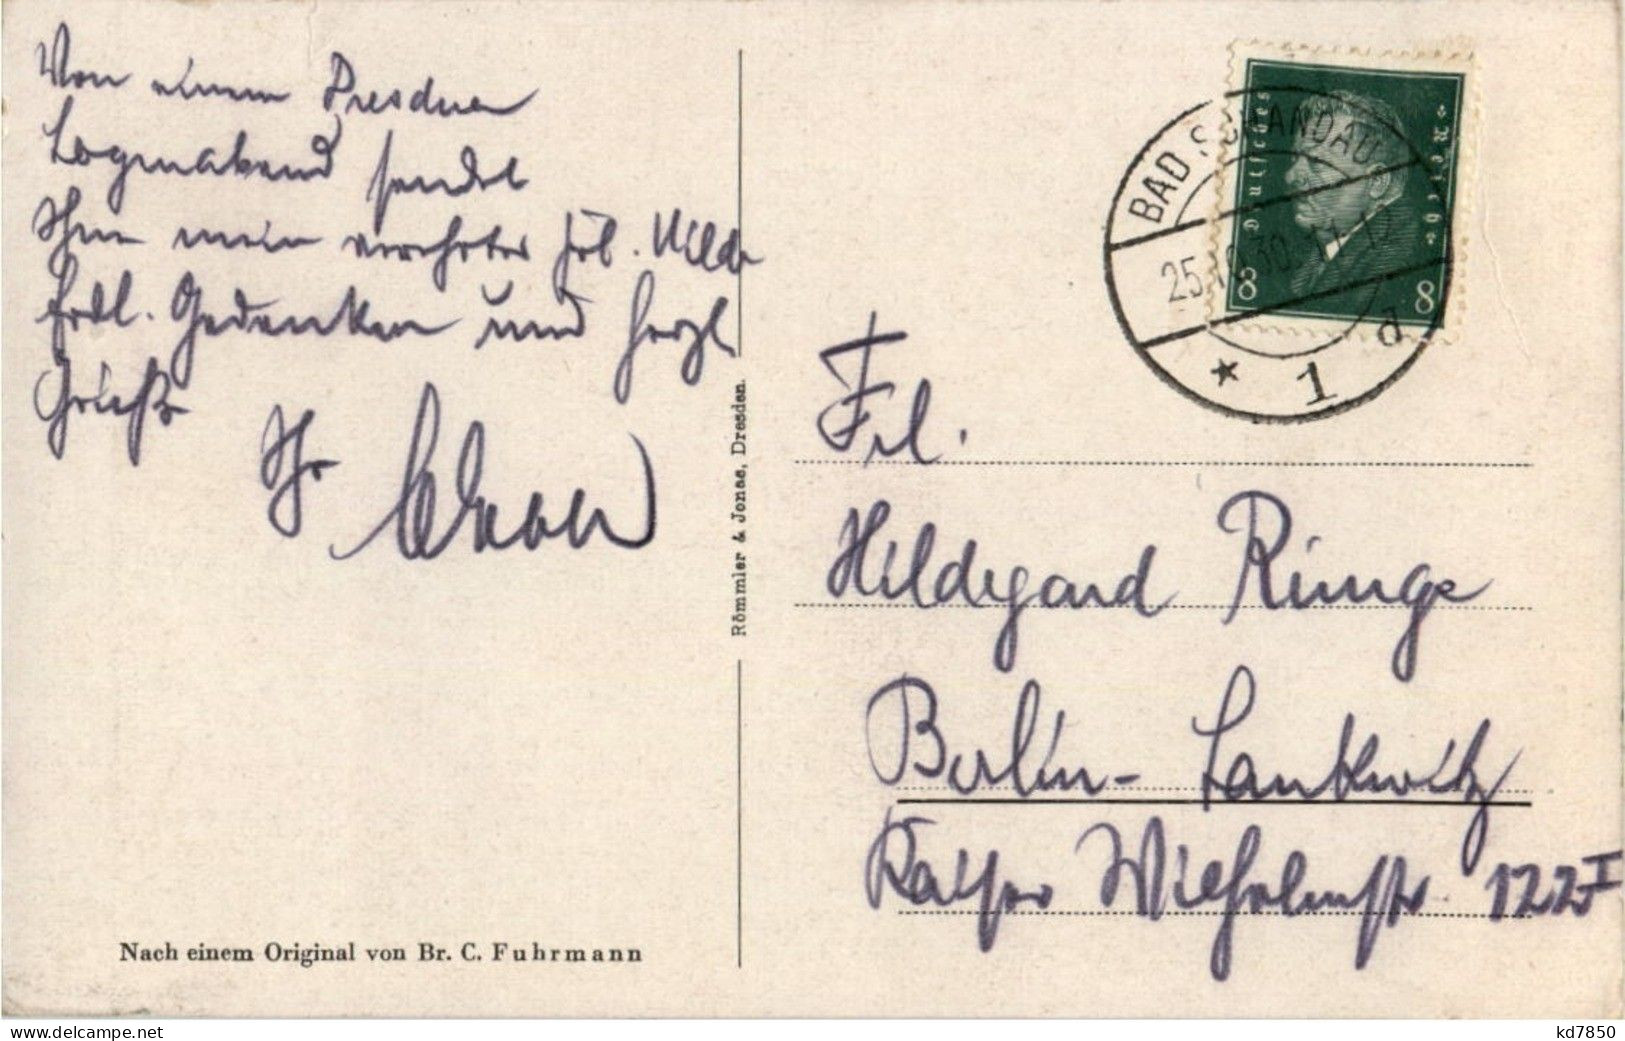 Von einem Dresdner
Logenabend sendet
Ihnen mein verehrtes Frl. Hilde
frdl. Gedanken und herzl
Grüße
Ihr
Römmler & Jonas, Dresden.
Nach einem Original von Br. C. Fuhrmann
Deutsches Reich
8 8
BAD SCHANDAU
25.10.30. 11-12
* 1 a
Frl.
Hildegard Runge
Berlin-Lankwitz
Kaiser Wilhelmstr. 122 I
www.delcampe.net
kd7850